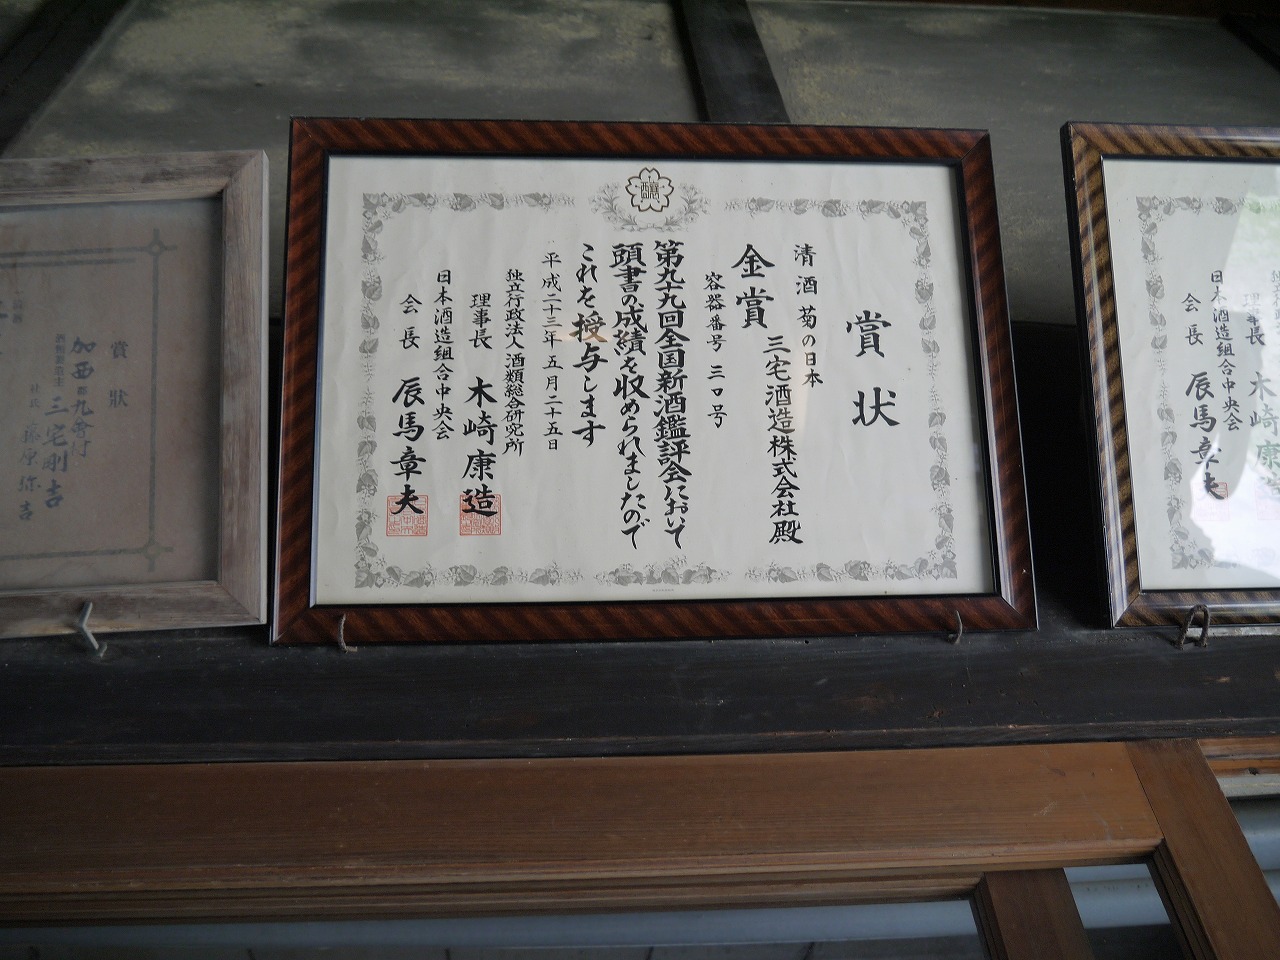 賞状
清酒 菊の日本
三宅酒造株式会社殿
金賞
容器番号 三口号
第九十九回全国新酒鑑評会において
頭書の成績を収められましたので
これを授与します
平成二十三年五月二十五日
独立行政法人酒類総合研究所
理事長 木崎康造
日本酒造組合中央会
会長 辰馬章夫
賞狀
加西郡九會村
三宅剛吉
理事長 木崎康造
日本酒造組合中央会
会長 辰馬章夫